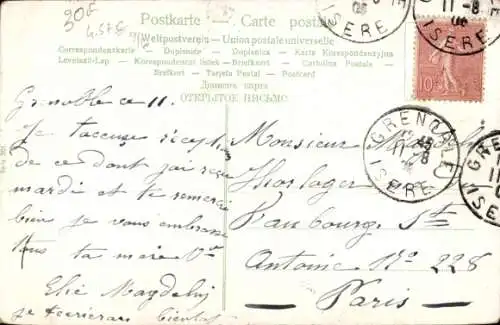 30F
Postkarte – Carte postale
Weltpostverein – Union postale universelle
Correspondenzkarte – Dopisnice – Dopisnica – Karta Korespondencyjna
Levelező-Lap – Korespondenční lístek – Briefkaart – Cartolina Postale
Brefkort – Tarjeta Postal – Postcard
Дописна карта
ОТКРЫТОЕ ПИСЬМО
ISERE
11 - 8
08
ISERE
10
GRENOBLE
11 - 8
ISERE
GRE
11
ISERE
Grenoble ce 11.
Je t'accuse
de ce dont j'ai reçu
mardi et te remercie
bien je vous embrasse
tous ta mère
Elie
je t'écrirai bientot
Monsieur
Horloger
Faubourg St
Antoine No 228
Paris